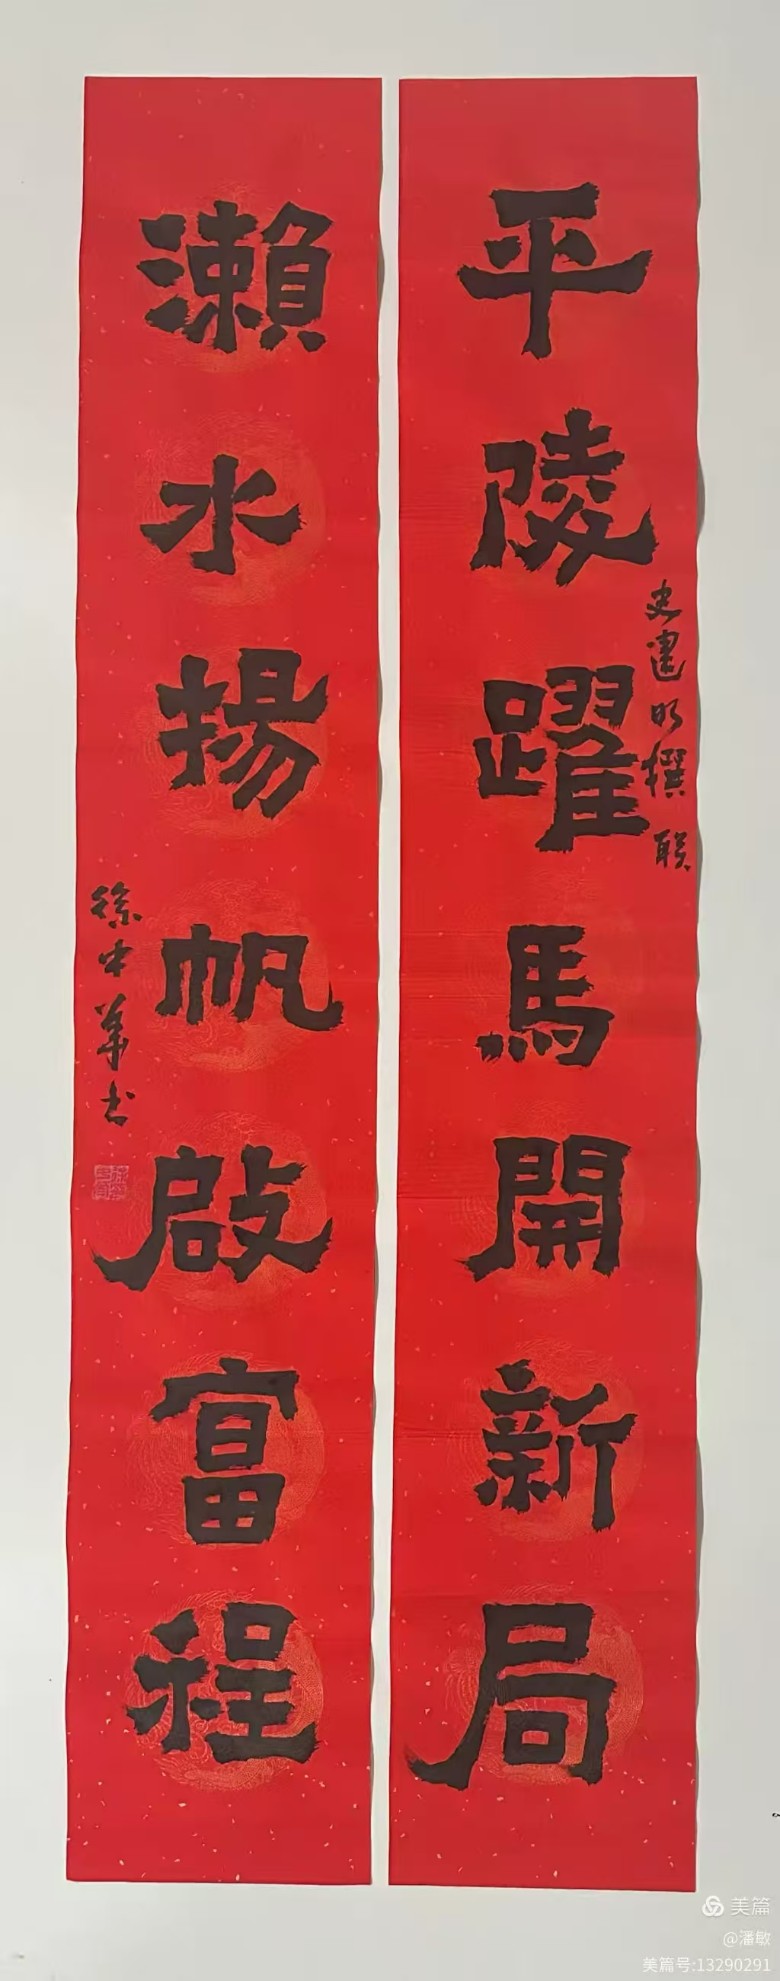 平陵躍馬開新局
史建明撰联
瀨水揚帆啟富程
徐中華书
美篇
@潘敏
美篇号:13290291